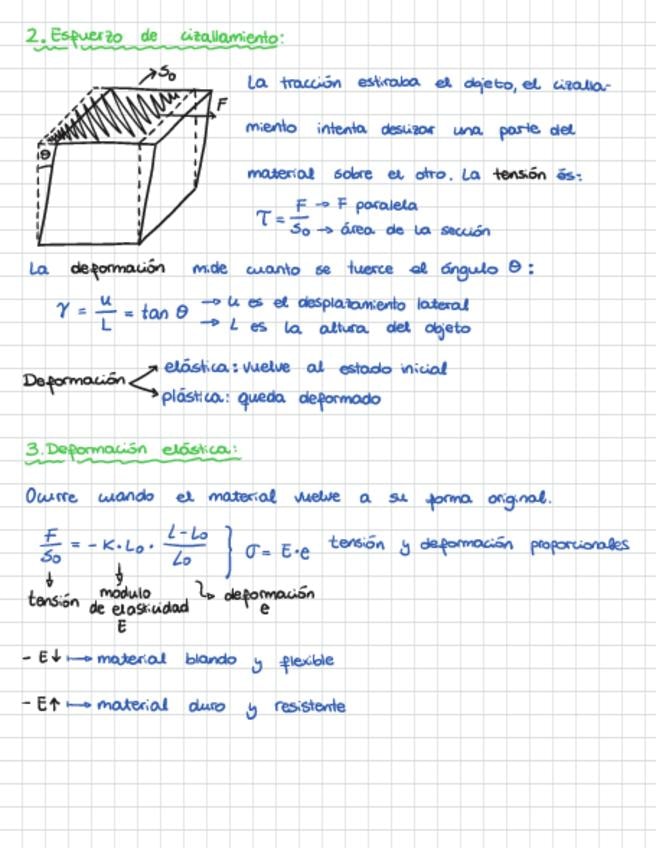 2. Esfuerzo de cizallamiento:
S₀
F
θ
La tracción estiraba el objeto, el cizalla-
miento intenta deslizar una parte del
material sobre el otro. La tensión és:
τ = F/S₀ → F paralela
→ área de la sección
La deformación mide cuanto se tuerce el ángulo θ:
γ = u/L = tan θ → u es el desplazamiento lateral
→ L es la altura del objeto
Deformación
elástica: vuelve al estado inicial
plástica: queda deformado
3. Deformación elástica:
Ocurre cuando el material vuelve a su forma original.
F/S₀ = - K · L₀ · (L - L₀)/L₀ } σ = E · e tensión y deformación proporcionales
↓ tensión
↓ modulo de elasticidad E
↳ deformación e
- E↓ ↦ material blando y flexible
- E↑ ↦ material duro y resistente